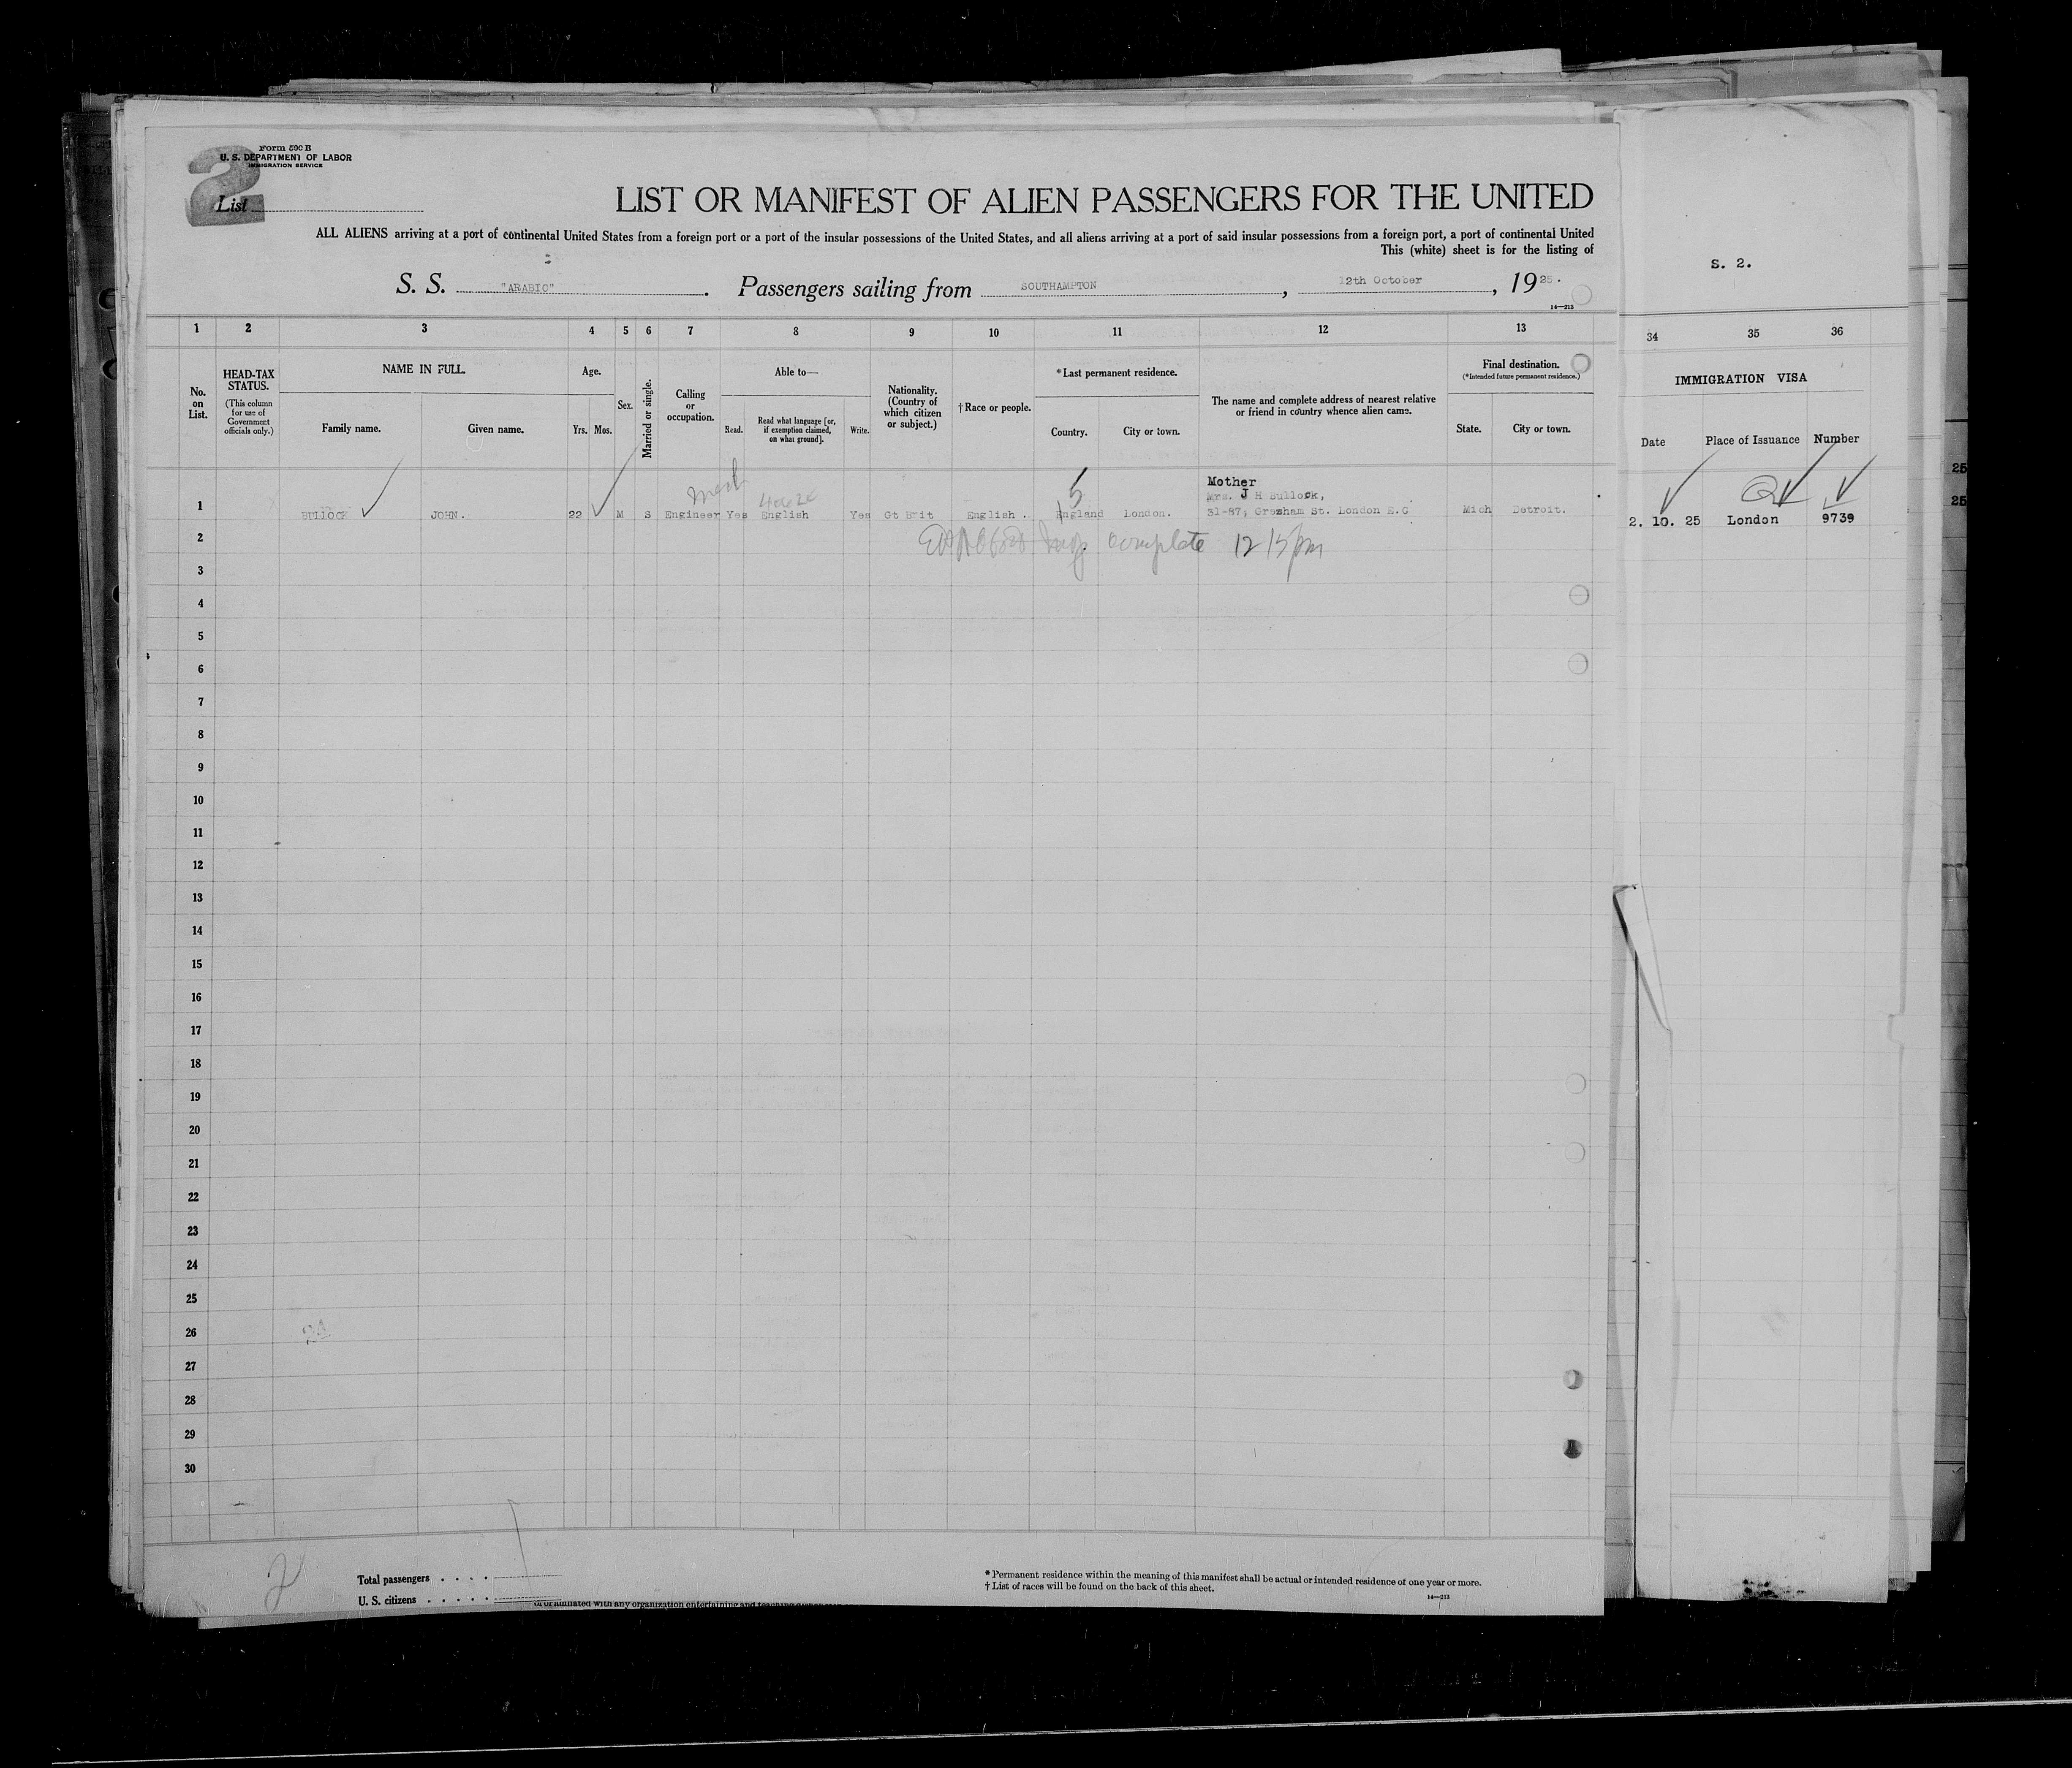 2
Form 500 B
U. S. DEPARTMENT OF LABOR
IMMIGRATION SERVICE
List
LIST OR MANIFEST OF ALIEN PASSENGERS FOR THE UNITED
ALL ALIENS arriving at a port of continental United States from a foreign port or a port of the insular possessions of the United States, and all aliens arriving at a port of said insular possessions from a foreign port, a port of continental United
This (white) sheet is for the listing of
S. 2.
S. S. "ARABIC". Passengers sailing from SOUTHAMPTON, 12th October, 1925.
14—213
1 2 3 4 5 6 7 8 9 10 11 12 13 34 35 36
No. on List.
HEAD-TAX STATUS.
(This column for use of Government officials only.)
NAME IN FULL.
Family name. Given name.
Age.
Yrs. Mos.
Sex.
Married or single.
Calling or occupation.
Able to—
Read.
Read what language [or, if exemption claimed, on what ground].
Write.
Nationality. (Country of which citizen or subject.)
†Race or people.
*Last permanent residence.
Country. City or town.
The name and complete address of nearest relative or friend in country whence alien came.
Final destination.
(*Intended future permanent residence.)
State. City or town.
IMMIGRATION VISA
Date Place of Issuance Number
5
Mother
Mrs. J H Bullock,
1 BULLOCK JOHN. 22 M S Engineer Yes English Yes Gt Brit English. England London. 31-87, Gresham St. London E.C Mich Detroit. 2. 10. 25 London 9739
2 complete 12 15 pm
3
4
5
6
7
8
9
10
11
12
13
14
15
16
17
18
19
20
21
22
23
24
25
26
27
28
29
30
2
Total passengers . . . .
U. S. citizens . . . . .
* Permanent residence within the meaning of this manifest shall be actual or intended residence of one year or more.
† List of races will be found on the back of this sheet.
14—213
25
25